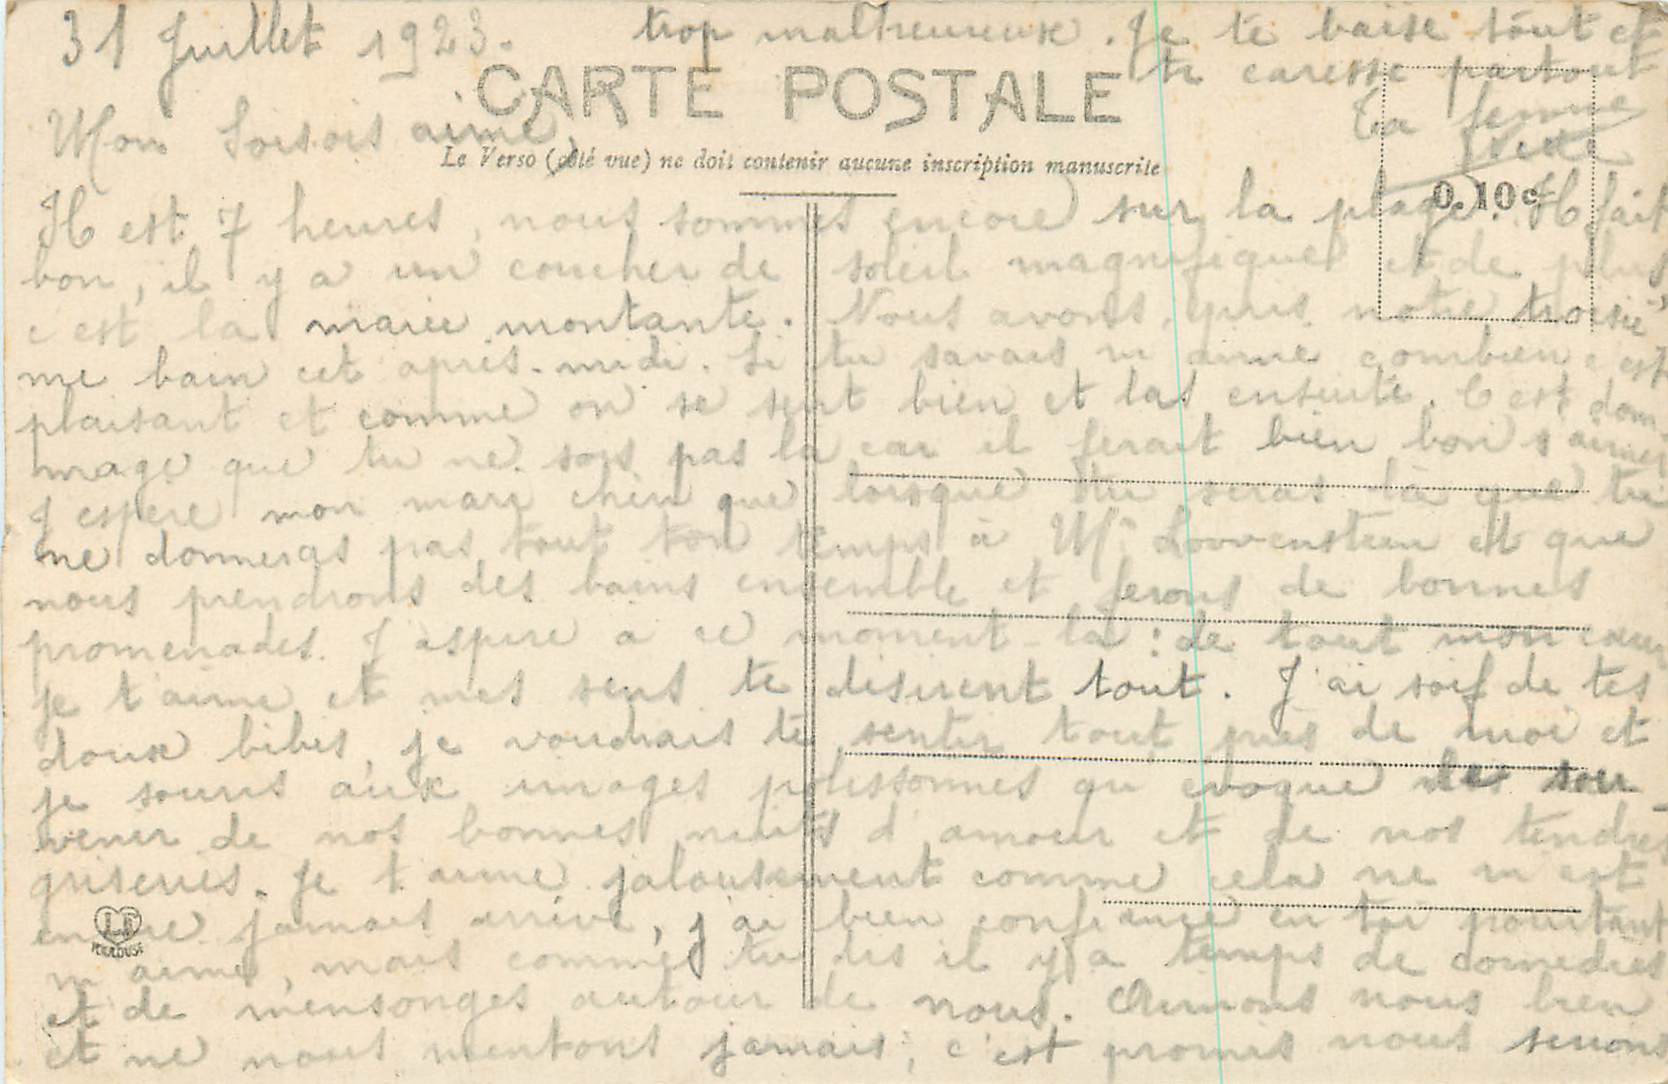 31 Juillet 1923.
CARTE POSTALE
Le Verso (côté vue) ne doit contenir aucune inscription manuscrite
0,10 c
Mon aimé,
Il est 7 heures, nous sommes encore sur la plage. Il fait
bon, il y a un coucher de soleil magnifique et de plus
c'est la marée montante. Nous avons pris notre troisiè
me bain cet après-midi. Si tu savais m aimé combien c'est
plaisant et comme on se sent bien et las ensuite. C'est dom-
mage que tu ne sois pas là car il ferait bien bon s'aimer
J'espère mon mari chéri que lorsque tu seras là que tu
ne donneras pas tout ton temps à Mr et que
nous prendrons des bains ensemble et ferons de bonnes
promenades. J aspire à ce moment-là : de tout mon cœur
je t'aime et mes sens te désirent tout. J'ai soif de tes
doux bibis, je voudrais te sentir tout près de moi et
je souris aux images polissonnes qu évoque le sou-
venir de nos bonnes nuits d'amour et de nos tendres
griseries. Je t'aime jalousement comme cela ne m'est
encore jamais arrivé, j'ai bien confiance en toi pourtant
m aimé, mais comme tu dis il y a temps de comédies
et de mensonges autour de nous. Aimons nous bien
et ne nous mentons jamais, c'est promis nous serions
trop malheureux. Je te baise tout et
te caresse partout
Ta femme
LF
TOULOUSE